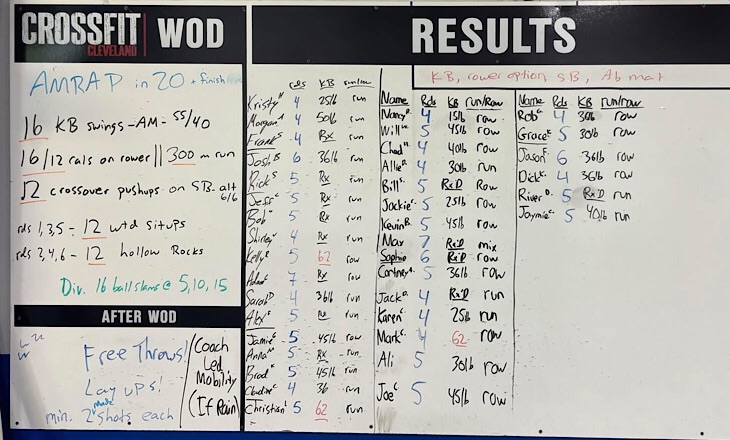 CROSSFIT CLEVELAND WOD
AMRAP in 20 + finish
16 KB swings - AM - 55/40
16/12 cals on rower || 300 m run
12 crossover pushups on SB - alt 6/6
rds 1,3,5 - 12 wtd situps
rds 2,4,6 - 12 hollow Rocks
Div. 16 ball slams @ 5,10,15
AFTER WOD
Free Throws!
Lay ups!
min. 2 made shots each
Coach
Led
Mobility
(If Rain)
RESULTS
KB, rower option, SB, Ab mat
rds KB run/row
Kristy H 4 25lb run
Morgan 4 50lb run
Frank S 4 Rx run
Josh B 6 36lb run
Rick S 5 Rx run
Jeff C 5 Rx run
Bob 5 Rx run
Shirley 4 Rx run
Kelly R 5 62 row
Adam 7 Rx row
Sarah D 4 36lb run
Alex S 5 Rx run
Jamie 5 45lb row
Anna 5 Rx run
Brad 5 45lb run
Claudine 4 36 run
Christian L 5 62 run
Name Rds KB run/Row
Nancy 4 15lb row
Will 5 45lb row
Chad 4 40lb row
Allie 4 30lb run
Bill S 5 RxD Row
Jackie 5 25lb row
Kevin B 5 45lb row
Max 7 RxD mix
Sophie 6 RxD row
Cortney 5 36lb row
Jack 4 RxD run
Karen 4 25lb run
Mark C 4 62 row
Ali 5 30lb row
Joe C 5 45lb row
Name Rds KB run/row
Rob 4 30lb row
Grace 5 30lb row
Jason 6 36lb row
Dick 4 36lb row
River D. 5 RxD run
Jaymie 5 40lb run